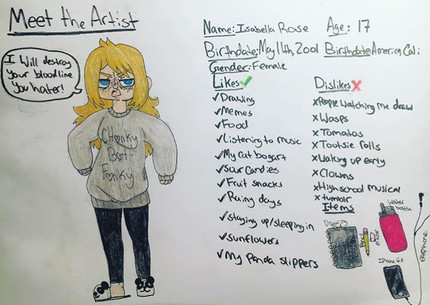 Meet the Artist
I Will destroy
your bloodline
you hater!
Chonky
But
Fonky
Name: Isabella Rose Age: 17
Birthdate: May 14th, 2001 Birthdate America, Cali
Gender: Female
Likes
Drawing
Memes
Food
Listening to music
My cat bogart
Sour Candies
Fruit snacks
Rainy days
staying up/sleeping in
sunflowers
My Panda slippers
Dislikes
People watching me draw
Wasps
Tomatos
Tootsie rolls
Waking up early
Clowns
Highschool musical
tumblr
Items
Water
bottle
iPhone 6s